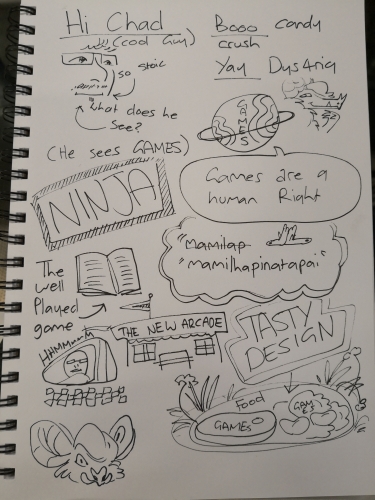 Hi Chad
(Cool Guy)
so stoic
what does he
see?
(He sees GAMES)
Booo candy
crush
Yay Dys4ria
GAMES
Games are a
human Right
NINJA
"Mamilap-
"mamilhapinatapai"
The
well
Played
game
HMMmmm
THE NEW ARCADE
TASTY
DESIGN
Food
GAMES
GAMES